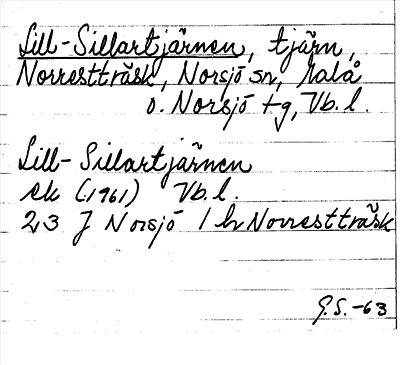 Lill-Sillartjärnen, tjärn,
Norrestträsk, Norsjö sn, Malå
o. Norsjö tg, Vb. l.
Lill-Sillartjärnen
ek (1961) Vb. l.
23 J Norsjö 1 h Norrestträsk
G.S. -63